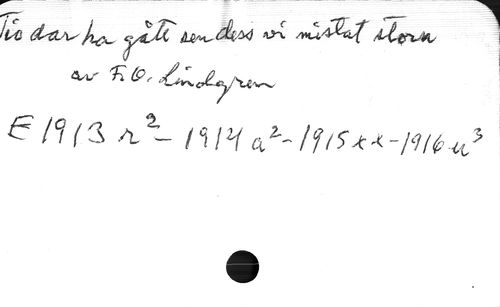 Tio dar ha gått sen dess vi mistat storn
av F. O. Lindgren
E 1913 r² - 1914 a² - 1915 xx - 1916 u³